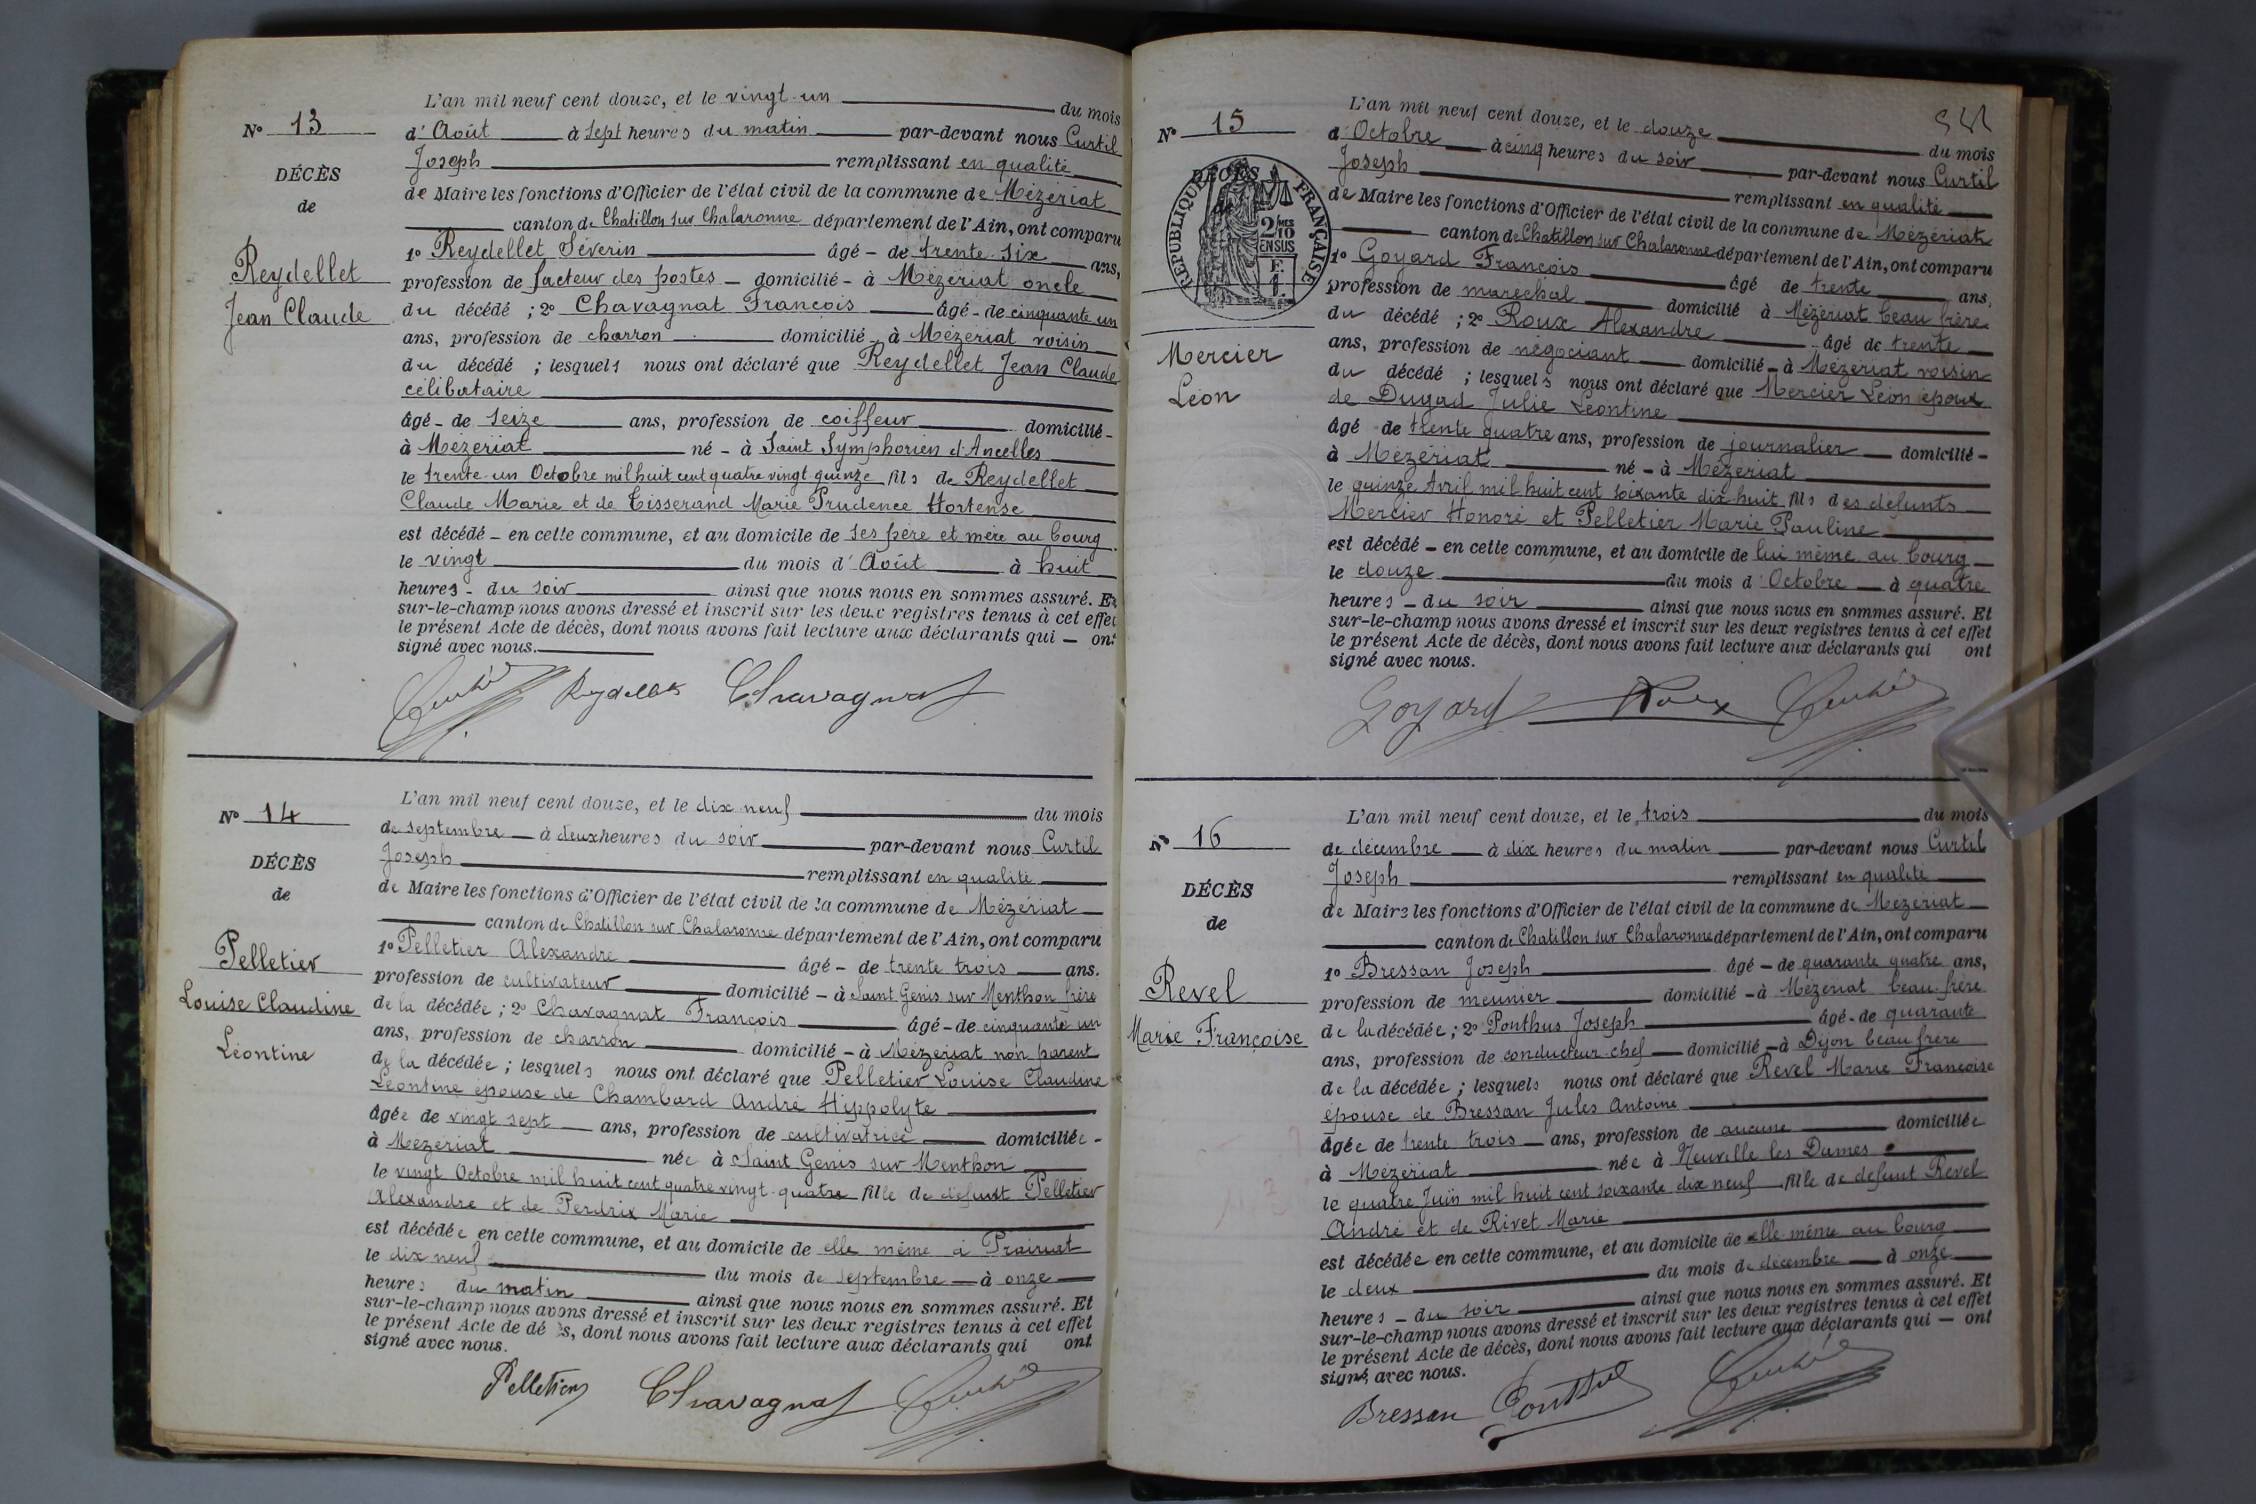 L'an mil neuf cent douze, et le vingt-un du mois
N° 13
d'Août à sept heures du matin par-devant nous Curtil
Joseph remplissant en qualité
DÉCÈS
de Maire les fonctions d'Officier de l'état civil de la commune de Mézériat
de
canton de Chatillon sur Chalaronne département de l'Ain, ont comparu
1° Reydellet Séverin âgé - de trente-six ans,
Reydellet
profession de facteur des postes - domicilié - à Mézériat oncle
Jean Claude
du décédé ; 2° Chavagnat François âgé - de cinquante un
ans, profession de charron domicilié - à Mézériat voisin
du décédé ; lesquels nous ont déclaré que Reydellet Jean Claude
célibataire
âgé - de seize ans, profession de coiffeur domicilié -
à Mézériat né - à Saint Symphorien d'Ancelles
le trente-un Octobre mil huit cent quatre vingt quinze fils de Reydellet
Claude Marie et de Tisserand Marie Prudence Hortense
est décédé - en cette commune, et au domicile de ses père et mère au bourg
le vingt du mois d'Août à huit
heures - du soir ainsi que nous nous en sommes assuré. Et
sur-le-champ nous avons dressé et inscrit sur les deux registres tenus à cet effet
le présent Acte de décès, dont nous avons fait lecture aux déclarants qui - ont
signé avec nous.
Curtil Reydellet Chavagnat
L'an mil neuf cent douze, et le dix neuf du mois
N° 14
de septembre à deux heures du soir par-devant nous Curtil
Joseph remplissant en qualité
DÉCÈS
de Maire les fonctions d'Officier de l'état civil de la commune de Mézériat
de
canton de Chatillon sur Chalaronne département de l'Ain, ont comparu
1° Pelletier Alexandre âgé - de trente trois ans.
Pelletier
profession de cultivateur domicilié - à Saint Genis sur Menthon frère
Louise Claudine
de la décédée ; 2° Chavagnat François âgé - de cinquante un
ans, profession de charron domicilié - à Mézériat non parent
Léontine
de la décédée ; lesquels nous ont déclaré que Pelletier Louise Claudine
Léontine épouse de Chambard André Hippolyte
âgée de vingt sept ans, profession de cultivatrice domiciliée -
à Mézériat née à Saint Genis sur Menthon
le vingt Octobre mil huit cent quatre vingt-quatre fille de défunt Pelletier
Alexandre et de Perdrix Marie
est décédée en cette commune, et au domicile de elle même à Prairiat
le dix neuf du mois de septembre à onze
heures du matin ainsi que nous nous en sommes assuré. Et
sur-le-champ nous avons dressé et inscrit sur les deux registres tenus à cet effet
le présent Acte de dé s, dont nous avons fait lecture aux déclarants qui ont
signé avec nous.
Pelletier Chavagnat Curtil
L'an mil neuf cent douze, et le douze du mois
N° 15
d'Octobre à cinq heures du soir par-devant nous Curtil
Joseph remplissant en qualité
DÉCÈS
RÉPUBLIQUE FRANÇAISE
2 MES
10
EN SUS
F.
1.
de Maire les fonctions d'Officier de l'état civil de la commune de Mézériat
canton de Chatillon sur Chalaronne département de l'Ain, ont comparu
1° Goyard François âgé de trente ans,
profession de maréchal domicilié à Mézériat beau frère
du décédé ; 2° Roux Alexandre âgé de trente
Mercier
ans, profession de négociant domicilié - à Mézériat voisin
Léon
du décédé ; lesquels nous ont déclaré que Mercier Léon époux
de Dugad Julie Léontine
âgé - de trente quatre ans, profession de journalier domicilié -
à Mézériat né - à Mézériat
le quinze Avril mil huit cent soixante dix huit fils des défunts
Mercier Honoré et Pelletier Marie Pauline
est décédé - en cette commune, et au domicile de lui même au bourg
le douze du mois d'Octobre à quatre
heures - du soir ainsi que nous nous en sommes assuré. Et
sur-le-champ nous avons dressé et inscrit sur les deux registres tenus à cet effet
le présent Acte de décès, dont nous avons fait lecture aux déclarants qui ont
signé avec nous.
Goyard Roux Curtil
L'an mil neuf cent douze, et le trois du mois
N° 16
de décembre à dix heures du matin par-devant nous Curtil
Joseph remplissant en qualité
DÉCÈS
de Maire les fonctions d'Officier de l'état civil de la commune de Mézériat
de
canton de Chatillon sur Chalaronne département de l'Ain, ont comparu
1° Bressan Joseph âgé - de quarante quatre ans,
Revel
profession de meunier domicilié - à Mézériat beau-frère
Marie Françoise
de la décédée ; 2° Ponthus Joseph âgé - de quarante
ans, profession de conducteur-chef domicilié - à Dijon beau frère
de la décédée ; lesquels nous ont déclaré que Revel Marie Françoise
épouse de Bressan Jules Antoine
âgée de trente trois ans, profession de aucune domiciliée
à Mézériat née à Neuville les Dames
le quatre Juin mil huit cent soixante dix neuf fille de défunt Revel
André et de Rivet Marie
est décédée en cette commune, et au domicile de elle-même au bourg
le deux du mois de décembre à onze
heures - du soir ainsi que nous nous en sommes assuré. Et
sur-le-champ nous avons dressé et inscrit sur les deux registres tenus à cet effet
le présent Acte de décès, dont nous avons fait lecture aux déclarants qui - ont
signé avec nous.
Bressan Ponthus Curtil